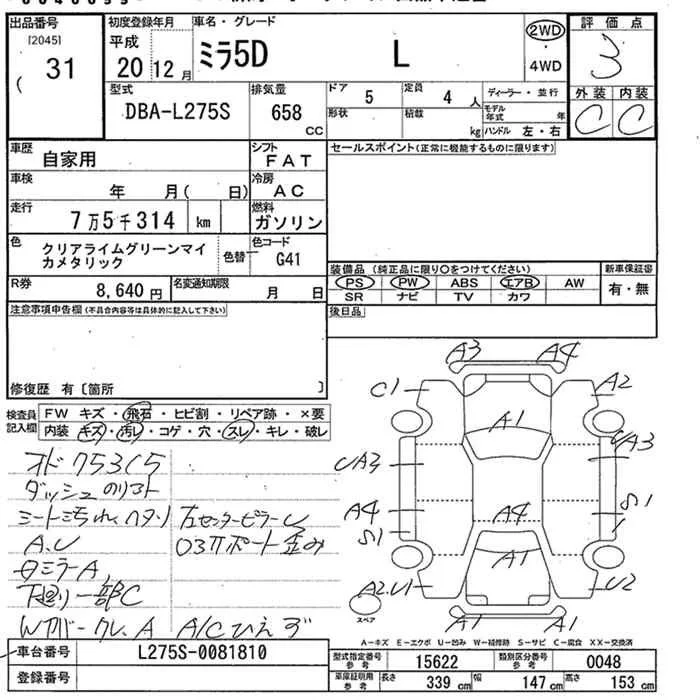 出品番号
[2045]
( 31
初度登録年月
平成
20 12月
車名・グレード
ミラ5D L
2WD
・
4WD
評価点
3
外装 内装
C C
型式
DBA-L275S
排気量
658 CC
ドア 5
定員 4 人
形状
積載 kg
ディーラー・並行
モデル年式 年
ハンドル 左・右
車歴
自家用
シフト
FAT
セールスポイント(正常に機能するものに限ります)
車検
年 月( 日)
冷房
AC
走行
7万5千314 km
燃料
ガソリン
色
クリアライムグリーンマイ
カメタリック
色替
色コード
G41
装備品 (純正品に限り〇をつけてください)
PS PW ABS エアB AW
SR ナビ TV カワ
新車保証書
有・無
R券
8,640円
名変通知期限
月 日
後日品
注意事項申告欄 (不具合内容等は具体的に記入して下さい)
修復歴 有〔箇所 〕
検査員
記入欄
FW キズ・飛石・ヒビ割・リペア跡・×要
内装・キズ・汚レ・コゲ・穴・スレ・キレ・破レ
ダッシュのリスト
A.U
下廻り一部C
A3 A4
C1 A2
A1
UA3 UA3
A4 A4 S1
S1
A1
A2.U1 U2
スペア
A1 A1
A-キズ E-エクボ U-凹み W-補修跡 S-サビ C-腐食 XX-交換済
車台番号 L275S-0081810
登録番号
型式指定番号
参考
15622
類別区分番号
参考
0048
車庫証明用
参考
長さ 339 cm 幅 147 cm 高さ 153 cm